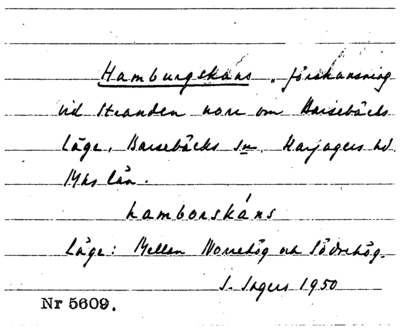 Hamburgskans, förskansning
vid stranden norr om Barsebäcks
läge, Barsebäcks sn. Harjagers hd.
Mhs län.
hamborskáns
Läge: Mellan Norrehög och Södrehög.
I. Ingers 1950
Nr 5609.